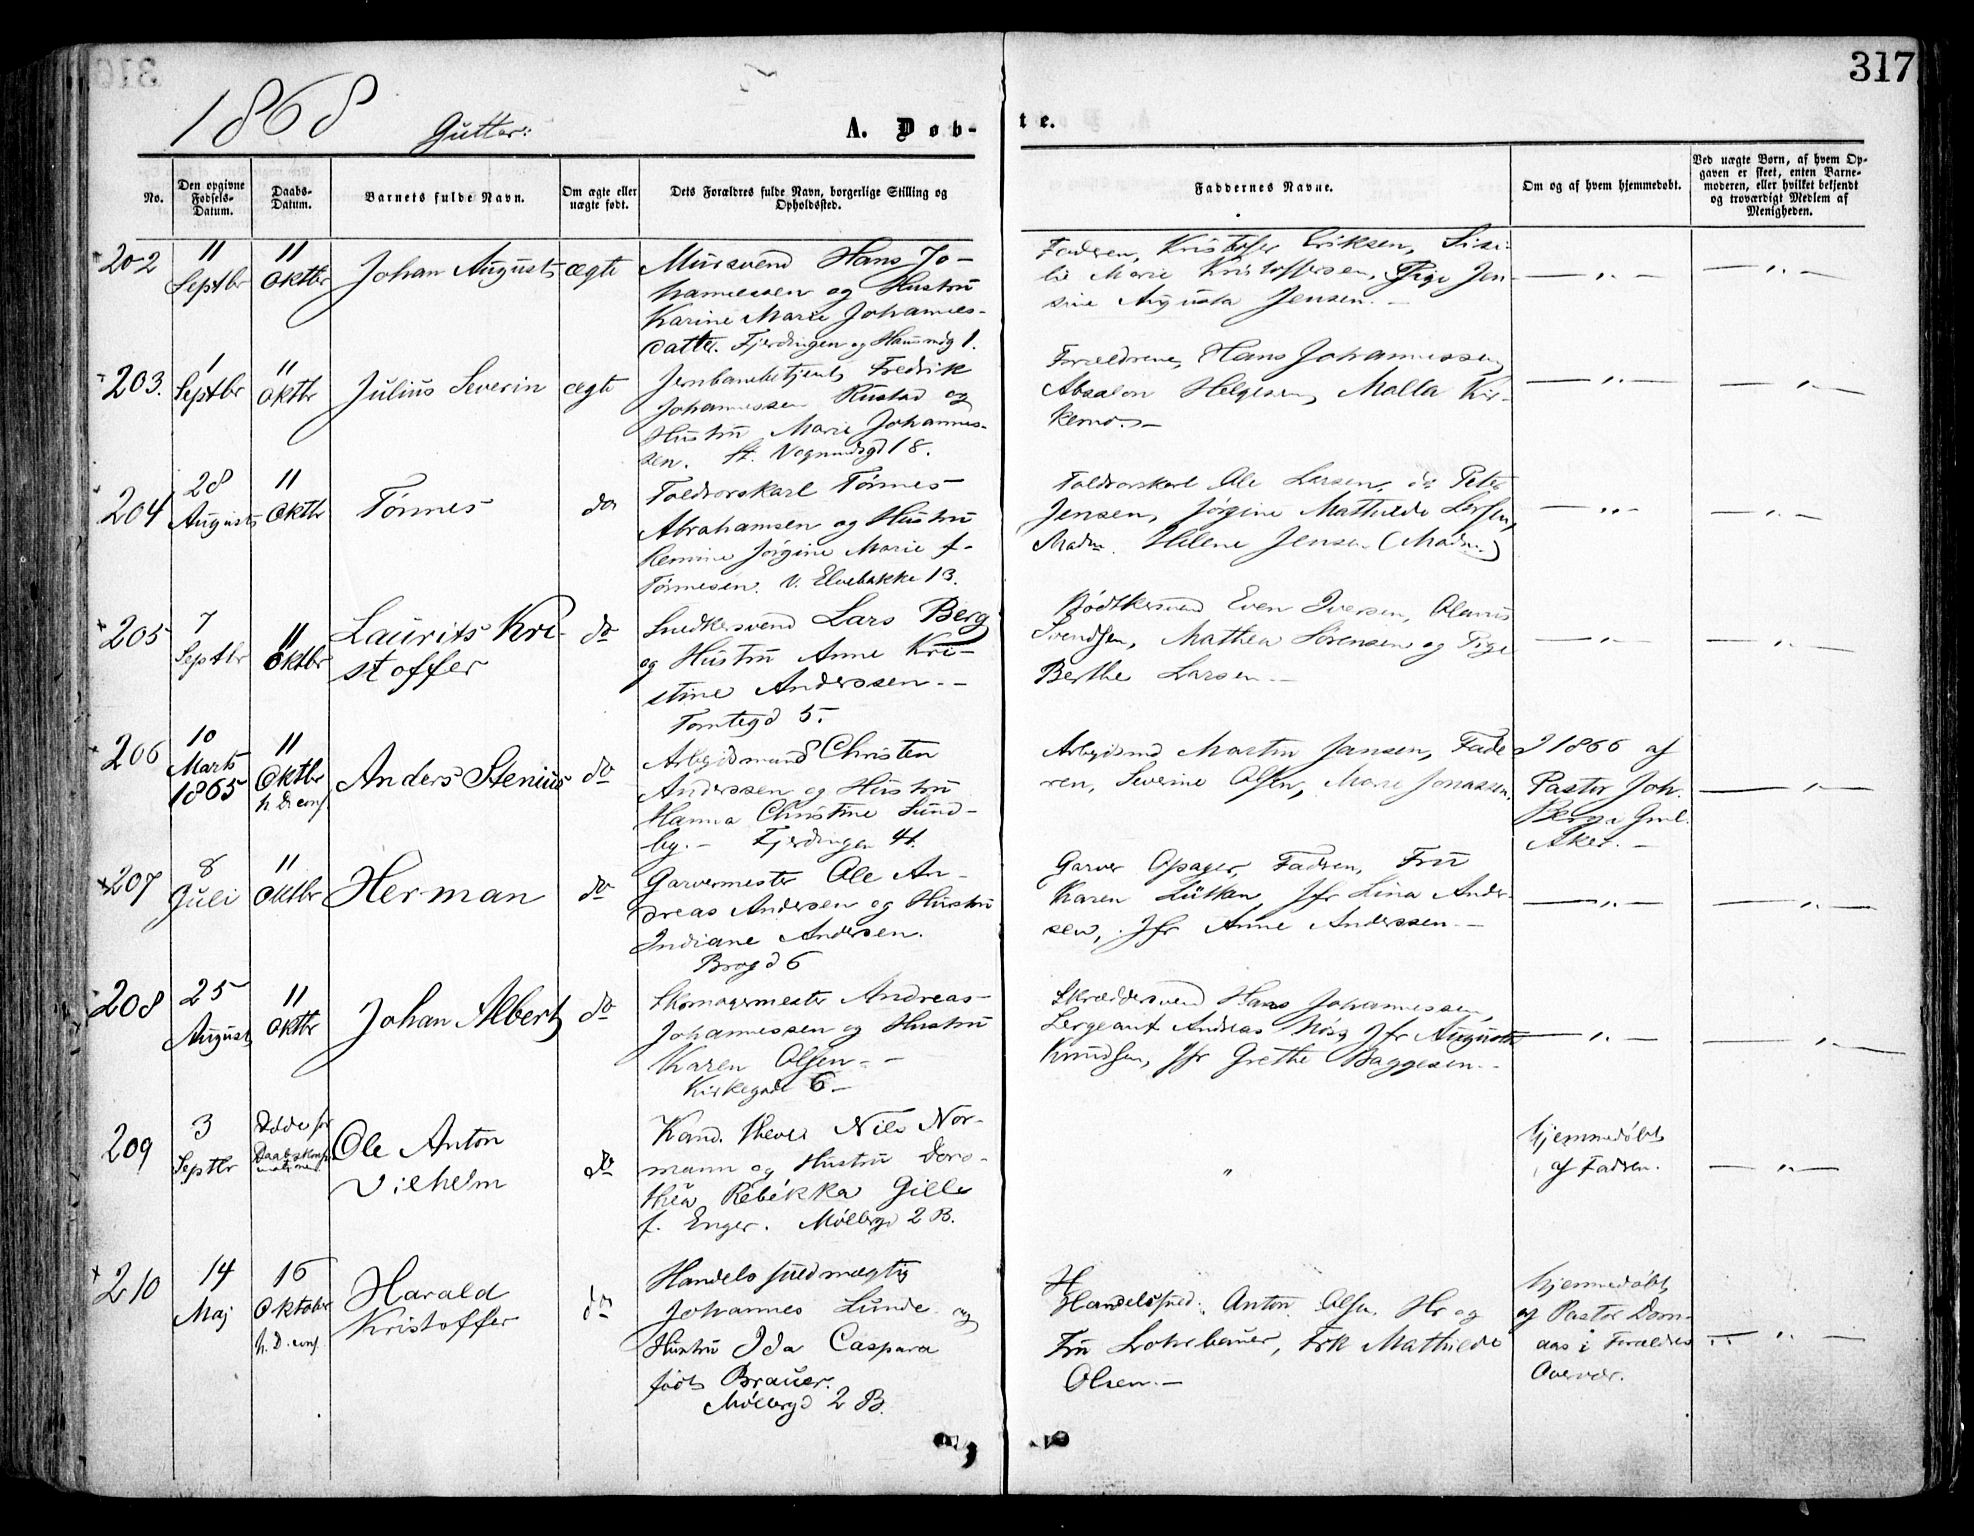 317
1868 Gutter:
A. Døb-te.
No.
Den opgivne Fødsels-Datum.
Daabs-Datum.
Barnets fulde Navn.
Om ægte eller uægte født.
Dets Forældres fulde Navn, borgerlige Stilling og Opholdssted.
Faddernes Navne.
Om og af hvem hjemmedøbt.
Ved uægte Børn, af hvem Op-
gaven er skeet, enten Barne-
moderen, eller hvilket bekjendt
og troværdigt Medlem af
Menigheden.
202
11 Septbr
11 Oktbr
Johan August
ægte
Mursvend Hans Jo-
hannessen og Hustru
Karine Marie Johannes-
datter. Fjerdingen og 1.
Faderen, Kristofer Eriksen, Lisi-
Marie Kristoffersen, Pige Jen-
sine Augusta Jensen. -
203.
1 Septbr
11 Oktbr
Julius Severin
ægte
Jernbanebetjent Fredrik
Johannessen Rustad og
Hustru Marie Johannes-
sen. St. Vognmdsgd 18.
Forældrene, Hans Johannessen,
Absalon Helgesen, Malla Kir-
kemo. -
204
28 August
11 Oktbr
Tønnes
do
Toldrorskarl Tønnes
Abrahamsen og Hustru
Jørgine Marie f.
Tønnesen. V. Elvebakke 13.
Toldrorskarl Ole Larsen, do Peter
Jensen, Jørgine Mathilde Larsen,
Madm. Helene Jensen (Madm.)
205
7 Septbr
11 Oktbr
Laurits Kri-
stoffer
do
Snedkersvend Lars Berg
og Hustru Anne Kri-
stine Anderssen. -
Tomtegd 5.
Bødkersvend Even Iversen, Olaus
Svendsen, Mathea Sørensen og Pige
Berthe Larsen -
206
10 Marts 1865
11 Oktbr h. D. conf.
Anders Stenius
do
Arbeidsmand Christen
Anderssen og Hustru
Hanna Christine Sund-
by. - Fjerdingen 41.
Arbeidsmd Martin Jansen, Fade-
ren, Severine Olsen, Marie Jonassen.
1866 af
Pastor Joh.
Berg i Gml.
Aker. -
207
8 Juli
11 Oktbr
Herman
do
Garvermester Ole An-
dreas Andersen og Hustru
Indiane Andersen.
Brogd 6
Garver Opager, Faderen, Fru
Karen Lütken, Jfr Lina Ander-
sen, Jfr Anne Anderssen. -
208
25 August
11 Oktbr
Johan Albert
do
Skomagermester Andreas
Johannessen og Hustru
Karen Olsen. -
Kirkegade 6 -
Skræddersvend Hans Johannessen,
Sergeant Andreas Moss, Jfr Augusta
Knudsen, Jfr Grethe Baggesen. -
209
3 Septbr
Døde før
Daabskonfir-
mationen
Ole Anton
Vilhelm
do
Kand. theol. Nils Nor-
mann og Hustru Doro-
thea Rebekka Gille
f. Enger. Møllergd 2 B.
hjemmedøbt
af Faderen.
210
14 Maj
16 Oktober h. D. conf.
Harald
Kristoffer
do
Handelsfuldmægtig
Johannes Lunde og
Hustru Ida Caspara
født Brauer.
Møllergd 2 B.
Handelsfuld. Anton Olsen, Hr og
Fru Lohrbauer, Frk Mathilde
Olsen. -
hjemmedøbt
af Pastor Dom-
aas i Forældres
Overvær.